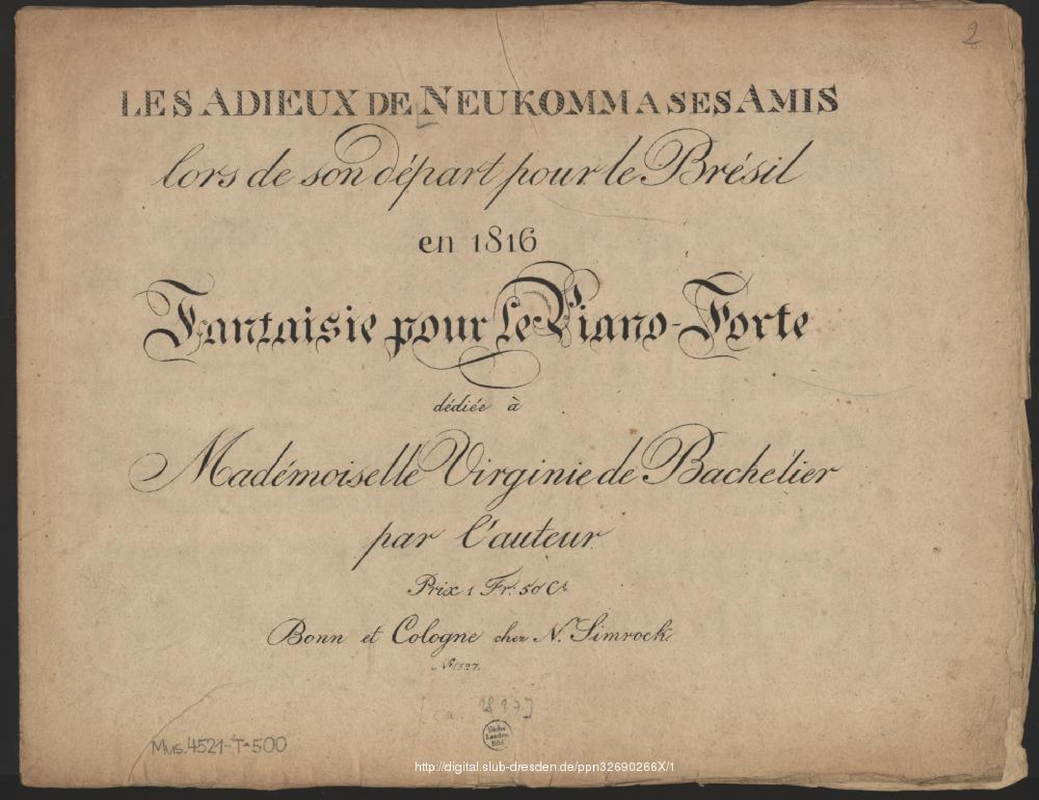 2
LES ADIEUX DE NEUKOMM A SES AMIS
lors de son départ pour le Brésil
en 1816
Fantaisie pour le Piano-Forte
dédiée à
Madémoiselle Virginie de Bachelier
par l'auteur
Prix 1 Fr. 50 Cs
Bonn et Cologne chez N. Simrock.
No. 1327.
[ca. 1817]
Sächs.
Landes
Bibl.
Mus. 4521-T-500
http://digital.slub-dresden.de/ppn32690266X/1